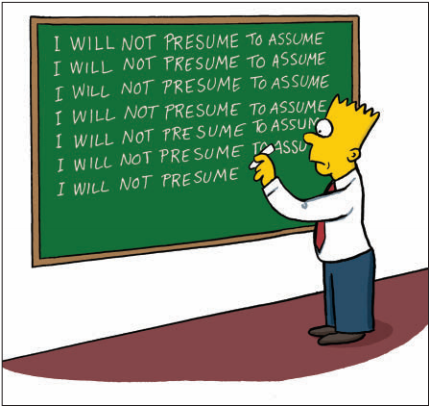 I WILL NOT PRESUME TO ASSUME
I WILL NOT PRESUME TO ASSUME
I WILL NOT PRESUME TO ASSUME
I WILL NOT PRESUME TO ASSUME
I WILL NOT PRESUME TO ASSUM
I WILL NOT PRESUME TO ASSU
I WILL NOT PRESUME